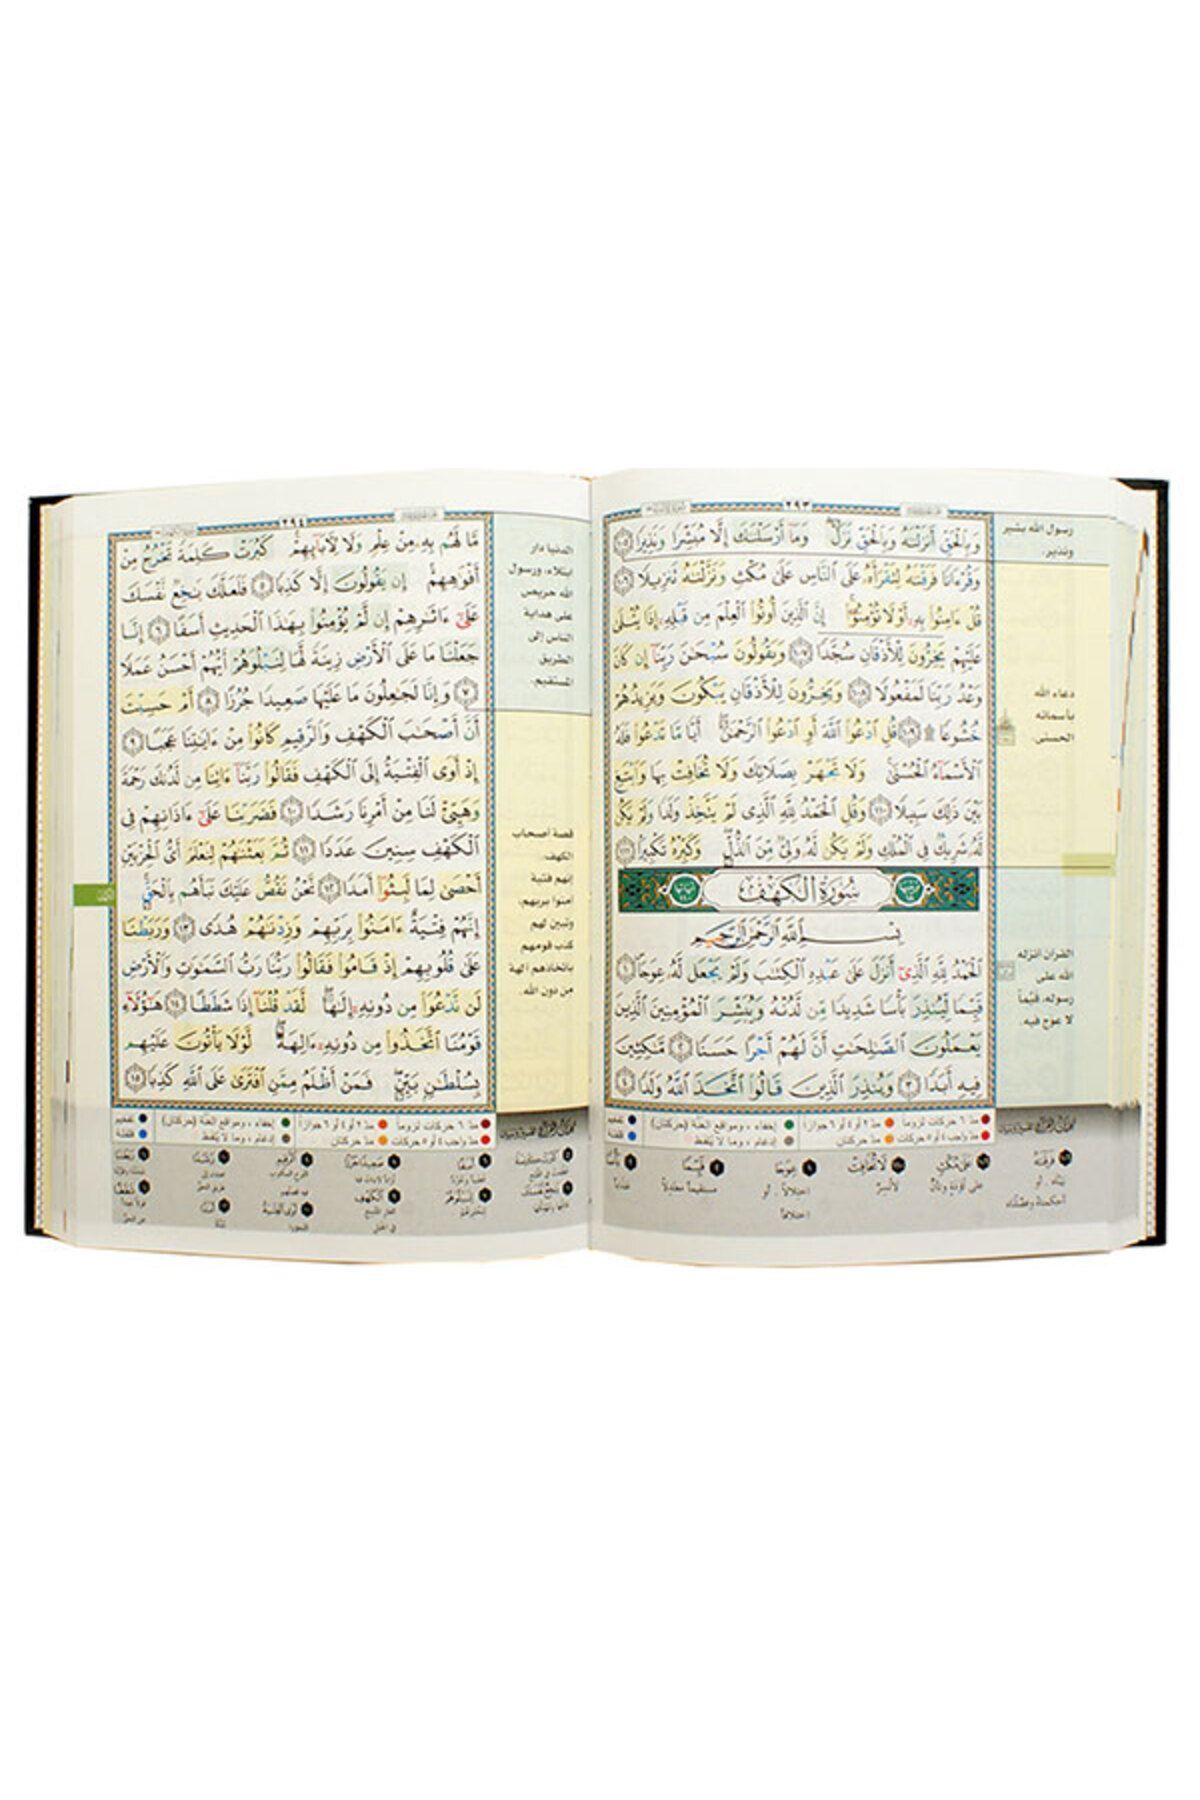 ٢٩٣
وَبِٱلْحَقِّ أَنزَلْنَٰهُ وَبِٱلْحَقِّ نَزَلَ ۗ وَمَآ أَرْسَلْنَٰكَ إِلَّا مُبَشِّرًا وَنَذِيرًا ١٠٥
وَقُرْءَانًا فَرَقْنَٰهُ لِتَقْرَأَهُۥ عَلَى ٱلنَّاسِ عَلَىٰ مُكْثٍ وَنَزَّلْنَٰهُ تَنزِيلًا ١٠٦
قُلْ ءَامِنُوا۟ بِهِۦٓ أَوْ لَا تُؤْمِنُوٓا۟ ۚ إِنَّ ٱلَّذِينَ أُوتُوا۟ ٱلْعِلْمَ مِن قَبْلِهِۦٓ إِذَا يُتْلَىٰ
عَلَيْهِمْ يَخِرُّونَ لِلْأَذْقَانِ سُجَّدًا ١٠٧ وَيَقُولُونَ سُبْحَٰنَ رَبِّنَآ إِن كَانَ
وَعْدُ رَبِّنَا لَمَفْعُولًا ١٠٨ وَيَخِرُّونَ لِلْأَذْقَانِ يَبْكُونَ وَيَزِيدُهُمْ
خُشُوعًا ۩ ١٠٩ قُلِ ٱدْعُوا۟ ٱللَّهَ أَوِ ٱدْعُوا۟ ٱلرَّحْمَٰنَ ۖ أَيًّا مَّا تَدْعُوا۟ فَلَهُ
ٱلْأَسْمَآءُ ٱلْحُسْنَىٰ ۚ وَلَا تَجْهَرْ بِصَلَاتِكَ وَلَا تُخَافِتْ بِهَا وَٱبْتَغِ
بَيْنَ ذَٰلِكَ سَبِيلًا ١١٠ وَقُلِ ٱلْحَمْدُ لِلَّهِ ٱلَّذِى لَمْ يَتَّخِذْ وَلَدًا وَلَمْ يَكُن
لَّهُۥ شَرِيكٌ فِى ٱلْمُلْكِ وَلَمْ يَكُن لَّهُۥ وَلِىٌّ مِّنَ ٱلذُّلِّ ۖ وَكَبِّرْهُ تَكْبِيرًا ١١١
سُورَةُ الكَهْفِ
بِسْمِ ٱللَّهِ ٱلرَّحْمَٰنِ ٱلرَّحِيمِ
ٱلْحَمْدُ لِلَّهِ ٱلَّذِىٓ أَنزَلَ عَلَىٰ عَبْدِهِ ٱلْكِتَٰبَ وَلَمْ يَجْعَل لَّهُۥ عِوَجَا ١
قَيِّمًا لِّيُنذِرَ بَأْسًا شَدِيدًا مِّن لَّدُنْهُ وَيُبَشِّرَ ٱلْمُؤْمِنِينَ ٱلَّذِينَ
يَعْمَلُونَ ٱلصَّٰلِحَٰتِ أَنَّ لَهُمْ أَجْرًا حَسَنًا ٢ مَّٰكِثِينَ
فِيهِ أَبَدًا ٣ وَيُنذِرَ ٱلَّذِينَ قَالُوا۟ ٱتَّخَذَ ٱللَّهُ وَلَدًا ٤
رسول الله بشير
ونذير.
دعاء الله
بأسمائه
الحسنى.
القرآن أنزله
الله على
رسوله، قيّماً
لا عوج فيه.
مدّ ٦ حركات لزوماً
مدّ ٢ أو ٤ أو ٦ جوازاً
إخفاء، ومواقع الغُنَّة (حركتان)
تفخيم
مدّ واجب ٤ أو ٥ حركات
مدّ حركتان
إدغام، وما لا يُلفَظ
قلقلة
فَرَقْنَاهُ
عَلَى مُكْثٍ
لَا تُخَافِتْ
عِوَجًا
قَيِّمًا
بَأْسًا
بيّنّاه. أو
على تُؤَدَةٍ وتأنٍّ
لا تُسِرَّ
اختلالاً. أو
مستقيماً معتدلاً
عذاباً
أحكمناهُ وفصّلناه
اختلافاً
٢٩٤
مَّا لَهُم بِهِۦ مِنْ عِلْمٍ وَلَا لِءَابَآئِهِمْ ۚ كَبُرَتْ كَلِمَةً تَخْرُجُ مِنْ
أَفْوَٰهِهِمْ ۚ إِن يَقُولُونَ إِلَّا كَذِبًا ٥ فَلَعَلَّكَ بَٰخِعٌ نَّفْسَكَ
عَلَىٰٓ ءَاثَٰرِهِمْ إِن لَّمْ يُؤْمِنُوا۟ بِهَٰذَا ٱلْحَدِيثِ أَسَفًا ٦ إِنَّا
جَعَلْنَا مَا عَلَى ٱلْأَرْضِ زِينَةً لَّهَا لِنَبْلُوَهُمْ أَيُّهُمْ أَحْسَنُ عَمَلًا
٧ وَإِنَّا لَجَٰعِلُونَ مَا عَلَيْهَا صَعِيدًا جُرُزًا ٨ أَمْ حَسِبْتَ
أَنَّ أَصْحَٰبَ ٱلْكَهْفِ وَٱلرَّقِيمِ كَانُوا۟ مِنْ ءَايَٰتِنَا عَجَبًا ٩
إِذْ أَوَى ٱلْفِتْيَةُ إِلَى ٱلْكَهْفِ فَقَالُوا۟ رَبَّنَآ ءَاتِنَا مِن لَّدُنكَ رَحْمَةً
وَهَيِّئْ لَنَا مِنْ أَمْرِنَا رَشَدًا ١٠ فَضَرَبْنَا عَلَىٰٓ ءَاذَانِهِمْ فِى
ٱلْكَهْفِ سِنِينَ عَدَدًا ١١ ثُمَّ بَعَثْنَٰهُمْ لِنَعْلَمَ أَىُّ ٱلْحِزْبَيْنِ
أَحْصَىٰ لِمَا لَبِثُوٓا۟ أَمَدًا ١٢ نَّحْنُ نَقُصُّ عَلَيْكَ نَبَأَهُم بِٱلْحَقِّ ۚ
إِنَّهُمْ فِتْيَةٌ ءَامَنُوا۟ بِرَبِّهِمْ وَزِدْنَٰهُمْ هُدًى ١٣ وَرَبَطْنَا
عَلَىٰ قُلُوبِهِمْ إِذْ قَامُوا۟ فَقَالُوا۟ رَبُّنَا رَبُّ ٱلسَّمَٰوَٰتِ وَٱلْأَرْضِ
لَن نَّدْعُوَا۟ مِن دُونِهِۦٓ إِلَٰهًا ۖ لَّقَدْ قُلْنَآ إِذًا شَطَطًا ١٤ هَٰٓؤُلَآءِ
قَوْمُنَا ٱتَّخَذُوا۟ مِن دُونِهِۦٓ ءَالِهَةً ۖ لَّوْلَا يَأْتُونَ عَلَيْهِم
بِسُلْطَٰنٍۭ بَيِّنٍ ۖ فَمَنْ أَظْلَمُ مِمَّنِ ٱفْتَرَىٰ عَلَى ٱللَّهِ كَذِبًا ١٥
الدنيا دار
ابتلاء، ورسول
الله حريص
على هداية
الناس إلى
الطريق
المستقيم.
قصة أصحاب
الكهف:
إنهم فتية
آمنوا بربهم،
وتبين لهم
كذب قومهم
باتخاذهم آلهة
من دون الله.
مدّ ٦ حركات لزوماً
مدّ ٢ أو ٤ أو ٦ جوازاً
إخفاء، ومواقع الغُنَّة (حركتان)
تفخيم
مدّ واجب ٤ أو ٥ حركات
مدّ حركتان
إدغام، وما لا يُلفَظ
قلقلة
كَبُرَتْ كَلِمَةً
أَسَفًا
صَعِيدًا جُرُزًا
الرَّقِيمِ
لِنَبْلُوَهُمْ
الْكَهْفِ
أَوَى الْفِتْيَةُ
أَمَدًا
شَطَطًا